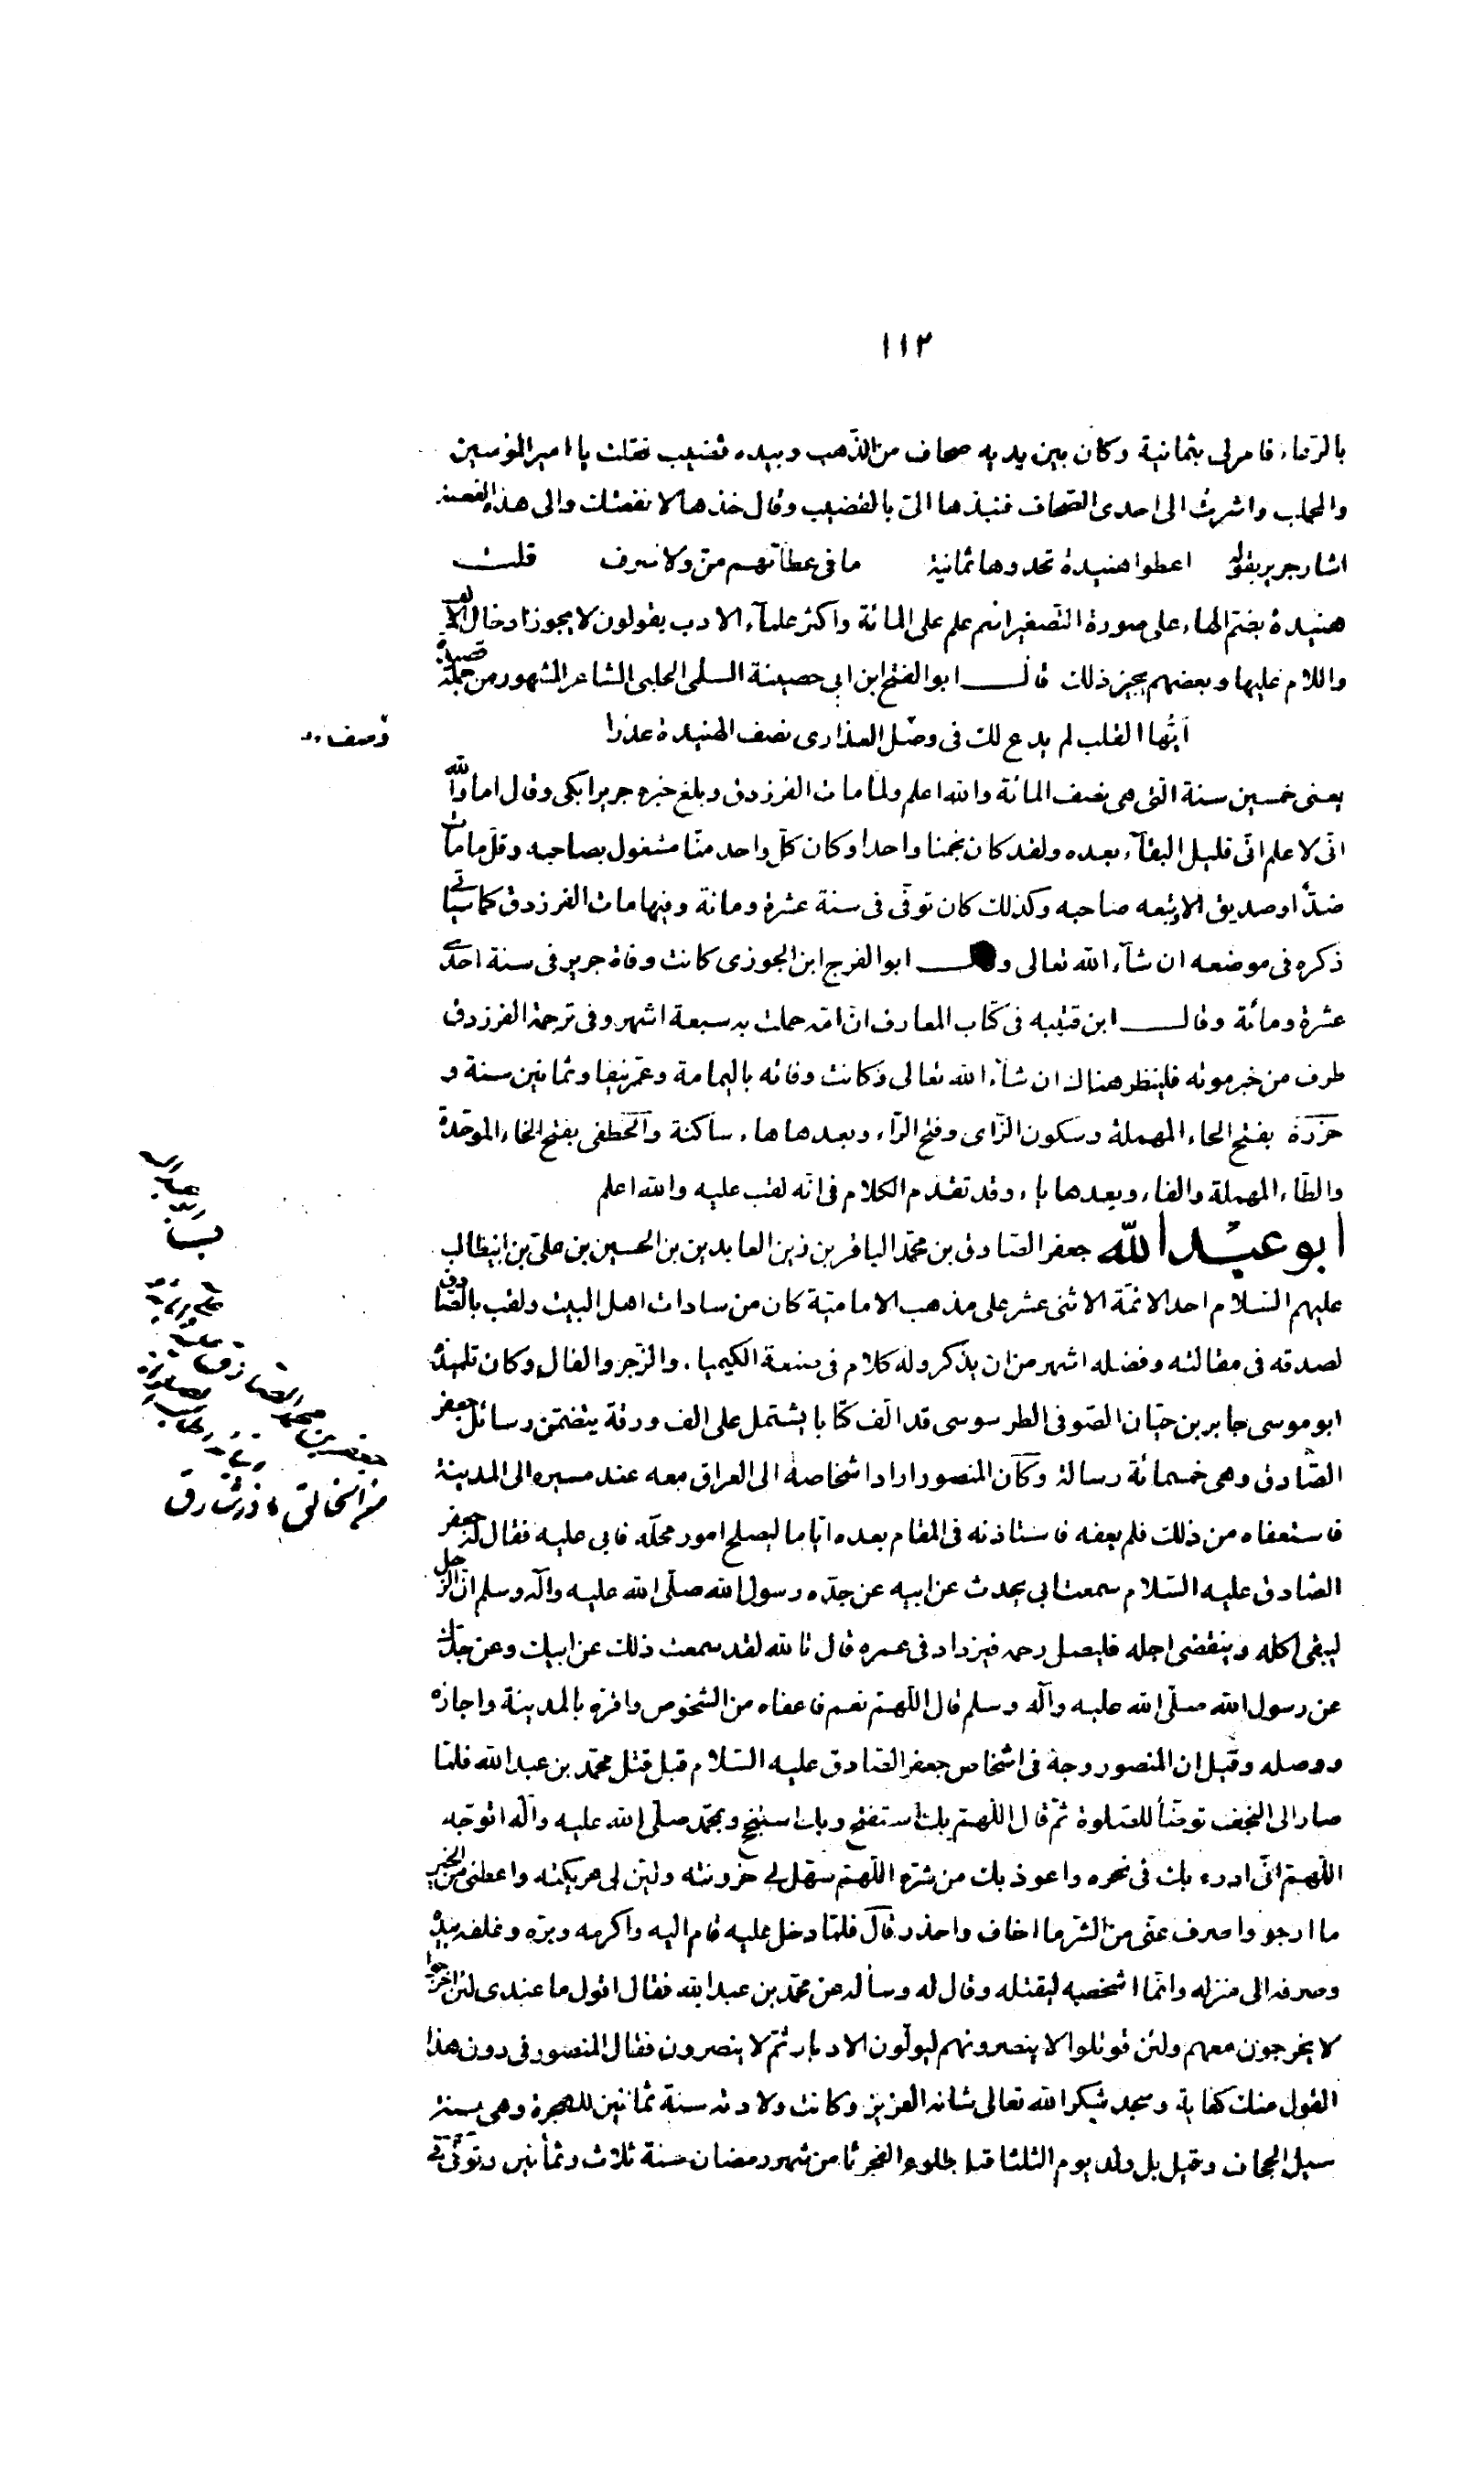 ١١٢
بالرعاء فامر لى بثمانية وكان بين يديه صحاف من الذّهب وبيده قضيب فقلت يا امير المؤمنين
والمحلب واشرت الى احدى الصّحاف فنبذها الىّ بالقضيب وقال خذها لا نفعتك والى هذه القصّة
اشار جرير بقوله اعطوا هنيدة تحدوها ثمانية ما فى عطائهم منّ ولا سرف قلت
هنيدة بضمّ الهاء على صورة التّصغير اسم علم على المائة واكثر علمآء الادب يقولون لا يجوز ادخال الالف
واللام عليها وبعضهم يجيز ذلك قال ابو الفتح ابن ابى حصينة السلمى الحلبى الشاعر المشهور من جملة قصيدة
ايّها القلب لم يدع لك فى وصل العذارى نصف الهنيدة عذرا
يعنى خمسين سنة التى هى نصف المائة والله اعلم ولمّا مات الفرزدق وبلغ خبره جريرا بكى وقال اما والله
انّى لاعلم انّى قليل البقآء بعده ولقد كان نجمنا واحدا وكان كلّ واحد منّا مشغول بصاحبه وقلّ ما مات
ضدّ او صديق الا وتبعه صاحبه وكذلك كان توفّى فى سنة عشرة ومائة وفيها مات الفرزدق كما سيأتى
ذكره فى موضعه ان شآء الله تعالى وقال ابو الفرج ابن الجوزى كانت وفاة جرير فى سنة احدى
عشرة ومائة وقال ابن قتيبه فى كتاب المعارف انّ امّه حملت به سبعة اشهر وفى ترجمة الفرزدق
طرف من خبر موته فلينظر هناك ان شآء الله تعالى وكانت وفاته باليمامة وعمّر نيفا وثمانين سنة و
حزرة بفتح الحاء المهملة وسكون الزّاى وفتح الرّاء وبعدها هاء ساكنة والخطفى بفتح الخاء الموحّدة
والطّاء المهملة والفاء وبعدها ياء وقد تقدم الكلام فى انّه لقب عليه والله اعلم
ابو عبد الله جعفر الصّادق بن محمّد الباقر بن زين العابدين بن الحسين بن علىّ بن ابيطالب
عليهم السّلام احد الائمّة الاثنى عشر على مذهب الاماميّة كان من سادات اهل البيت ولقب بالصّادق
لصدقه فى مقالته وفضله اشهر من ان يذكر وله كلام فى صنعة الكيميا والزّجر والفال وكان تلميذه
ابو موسى جابر بن حيّان الصّوفى الطرسوسى قد الّف كتابا يشتمل على الف ورقة يتضمّن رسائل جعفر
الصّادق وهى خمسمائة رسالة وكان المنصور اراد اشخاصه الى العراق معه عند مسيره الى المدينة
فاستعفاه من ذلك فلم يعفه فاستاذنه فى المقام بعده ايّاما ليصلح امور محلّه فابى عليه فقال له جعفر
الصّادق عليه السّلام سمعت ابى يحدث عن ابيه عن جدّه رسول الله صلّى الله عليه وآله وسلم ان الرّجل
ليبقى اكله وينقضى اجله فليصل رحمه فيزداد فى عمره قال تالله لقد سمعت ذلك عن ابيك وعن جدّك
عن رسول الله صلّى الله عليه وآله وسلم قال اللّهمّ نعم فاعفاه من الشخوص واقرّه بالمدينة واجازه
ووصله وقيل ان المنصور وجّه فى اشخاص جعفر الصّادق عليه السّلام قبل قتل محمّد بن عبدالله فلمّا
صار الى النجف توضّأ للصّلوة ثمّ قال اللّهمّ بك استفتح وبك استنجح وبمحمّد صلّى الله عليه وآله اتوجّه
اللّهمّ انّى ادرء بك فى نحره واعوذ بك من شرّه اللّهمّ سهّل لى حزونته وليّن لى عريكته واعطنى من الخير
ما ارجو واصرف عنّى من الشّر ما اخاف واحذر قال فلمّا دخل عليه قام اليه واكرمه وبرّه وغلفه بيده
وصرفه الى منزله وانّما اشخصه ليقتله وقال له وسأله عن محمّد بن عبدالله فقال اقول ما عندى لئن اخرجوا
لا يخرجون معهم ولئن قوتلوا لا ينصرونهم ليولّون الادبار ثمّ لا ينصرون فقال المنصور فى دون هذا
القول منك كفاية وسجد شكرا لله تعالى شانه العزيز وكانت ولادته سنة ثمانين للهجرة وهى سنة
سيل الجحاف وقيل بل ولد يوم الثلثا قبل طلوع الفجر ثامن شهر رمضان سنة ثلاث وثمانين وتوفّى فى